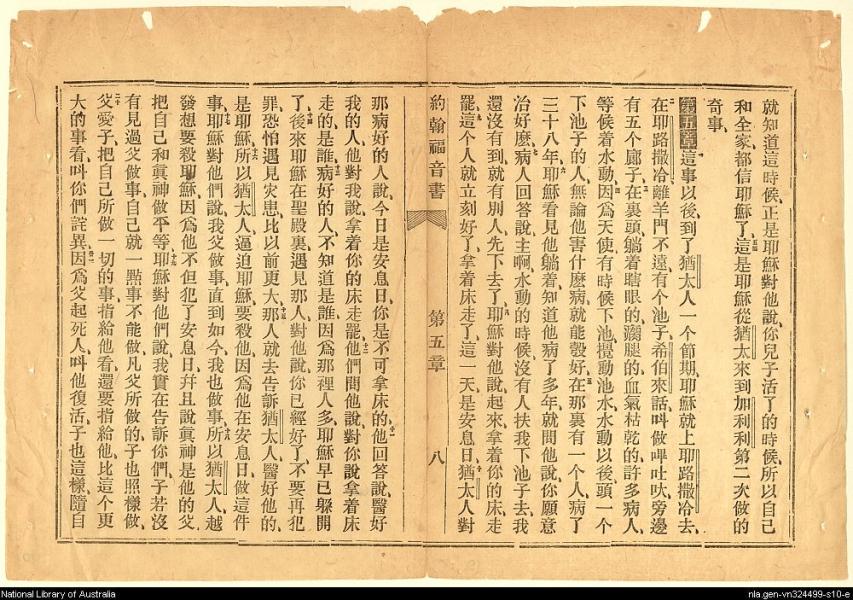 就知道這時候、正是耶穌對他說、你兒子活了的時候、所以自己
和全家、都信耶穌了、五四這是耶穌從猶太來到加利利第二次做的
奇事、
第五章一這事以後、到了猶太人一個節期、耶穌就上耶路撒冷去、
二在耶路撒冷離羊門不遠、有個池子、希伯來話叫做嗶吐吠、旁邊
有五個廊子、三在裏頭躺着瞎眼的、瘸腿的、血氣枯乾的、許多病人、
等候着水動、四因爲天使有時候下池、攪動池水、水動以後、頭一個
下池子的人、無論他害什麼病、就能彀好、五在那裏有一個人、病了
三十八年、六耶穌看見他躺着、知道他病了多年、就問他說、你願意
治好麼、七病人回答說、主啊、水動的時候、沒有人扶我下池子去、我
還沒有到、就有別人先下去了、八耶穌對他說、起來、拿着你的床走
罷、九這個人就立刻好了、拿着床走了、這一天是安息日、十猶太人對
約翰福音書 第五章 八
那病好的人說、今日是安息日、你是不可拿床的、十一他回答說、醫好
我的人、他對我說、拿着你的床走罷、十二他們問他說、對你說拿着床
走的是誰、十三病好的人不知道是誰、因爲那裡人多、耶穌早已躲開
了、十四後來耶穌在聖殿裏遇見那人、對他說、你已經好了、不要再犯
罪、恐怕遇見灾患、比以前更大、十五那人就去告訴猶太人、醫好他的
是耶穌、十六所以猶太人逼迫耶穌、要殺他、因爲他在安息日做這件
事、十七耶穌對他們說、我父做事直到如今、我也做事、十八所以猶太人越
發想要殺耶穌、因爲他不但犯了安息日、并且說眞神是他的父、
把自己和眞神做平等、十九耶穌對他們說、我實在告訴你們、子若沒
有見過父做事、自己就一點事不能做、凡父所做的、子也照樣做、
二十父愛子、把自己所做一切的事指給他看、還要指給他比這個更
大的事看、叫你們詫異、廿一因爲父起死人、叫他復活、子也這樣、隨自
National Library of Australia
nla.gen-vn324499-s10-e